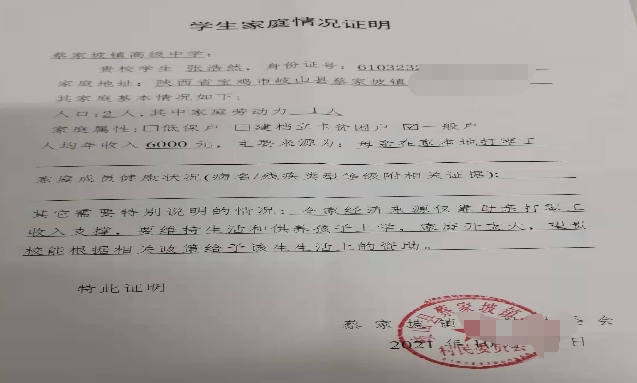 学生家庭情况证明
蔡家坡镇高级中学：
贵校学生 张浩然，身份证号：610323
家庭地址：陕西省宝鸡市岐山县蔡家坡镇
其家庭基本情况如下：
人口：2人，其中家庭劳动力 1人
家庭属性：□低保户 □建档立卡贫困户 ☑一般户
人均年收入 6000 元，主要来源为：母亲在本地打零工
家庭成员健康状况(病名/残疾类型等级附相关证据)：
其它需要特别说明的情况：全家经济来源仅靠母亲打零工
收入支撑，要维持生活和供养孩子上学，家庭开支大，
校能根据相关政策给予该生生活上的资助。
特此证明
蔡家坡镇 会
2021年 日
蔡家坡镇
村民委员会